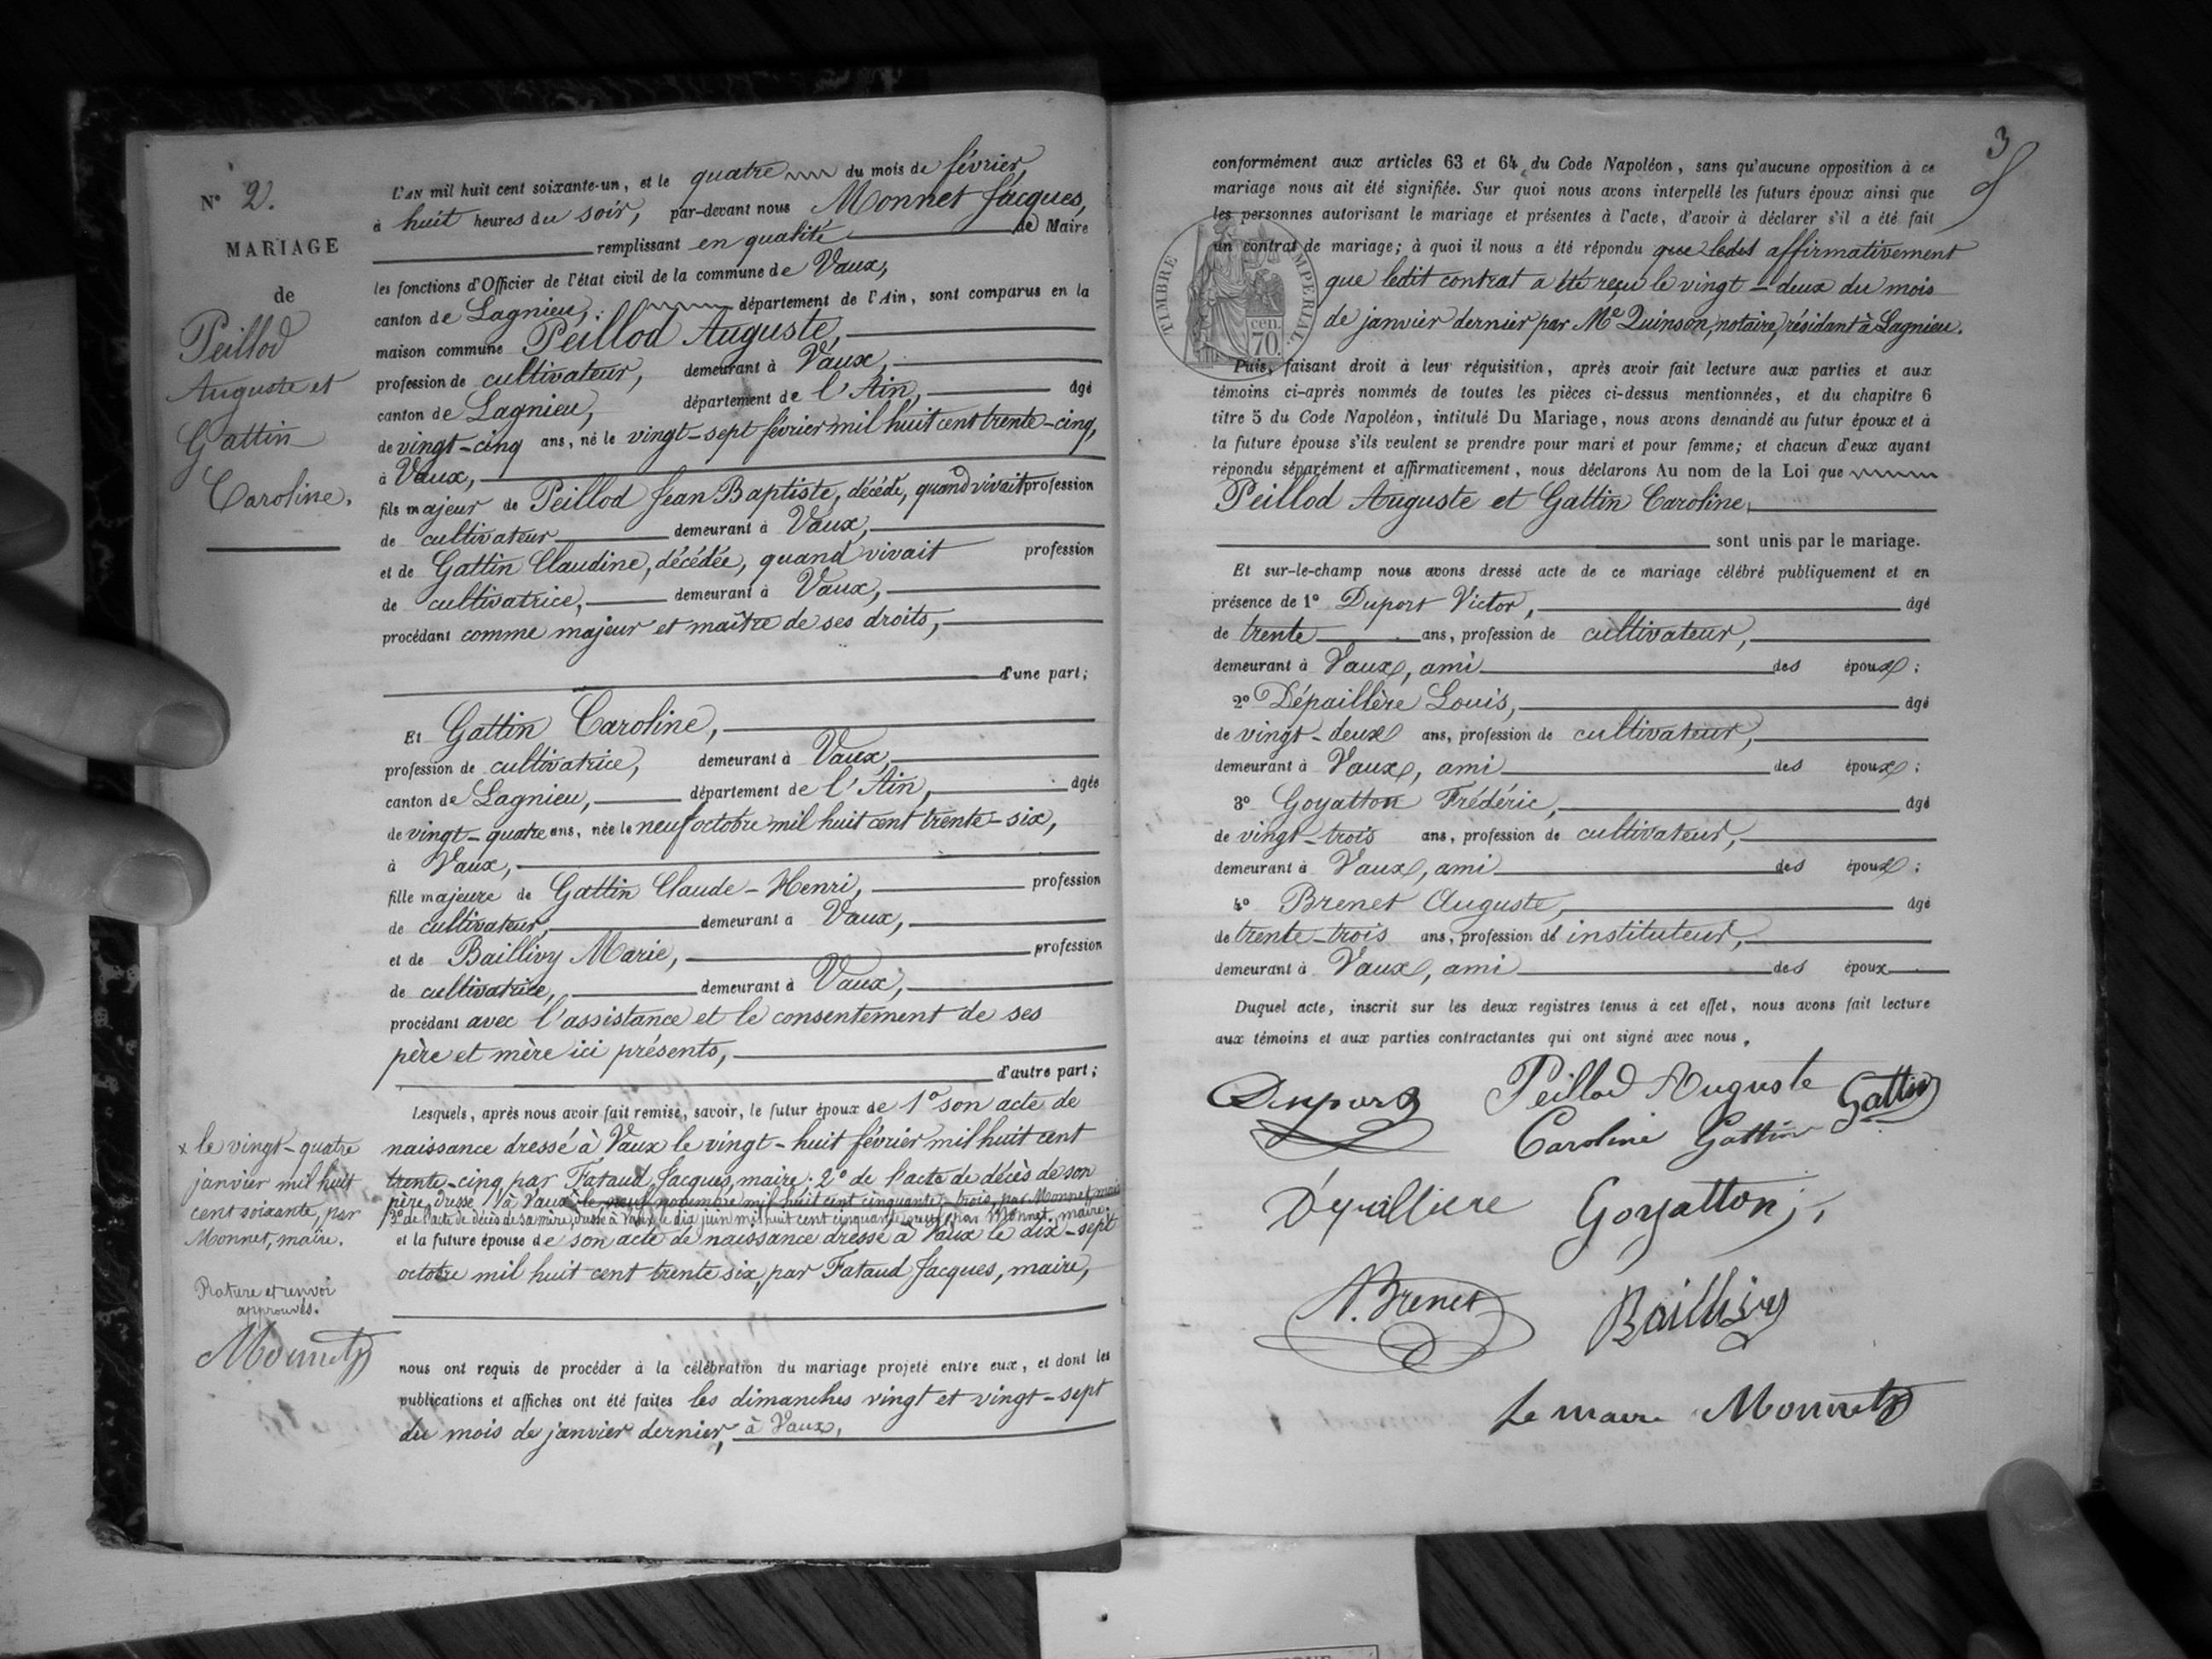 N° 2.
MARIAGE
de
Peillod
Auguste et
Gattin
Caroline.
L'AN mil huit cent soixante-un, et le quatre du mois de février,
à huit heures du soir, par-devant nous Monnet Jacques,
remplissant en qualité de Maire
les fonctions d'Officier de l'état civil de la commune de Vaux,
canton de Lagnieu, département de l'Ain, sont comparus en la
maison commune Peillod Auguste,
profession de cultivateur, demeurant à Vaux,
canton de Lagnieu, département de l'Ain, âgé
de vingt-cinq ans, né le vingt-sept février mil huit cent trente-cinq,
à Vaux,
fils majeur de Peillod Jean Baptiste, décédé, quand vivait profession
de cultivateur demeurant à Vaux,
et de Gattin Claudine, décédée, quand vivait profession
de cultivatrice, demeurant à Vaux,
procédant comme majeur et maître de ses droits,
d'une part;
Et Gattin Caroline,
profession de cultivatrice, demeurant à Vaux,
canton de Lagnieu, département de l'Ain, âgée
de vingt-quatre ans, née le neuf octobre mil huit cent trente-six,
à Vaux,
fille majeure de Gattin Claude-Henri, profession
de cultivateur, demeurant à Vaux,
et de Baillivy Marie, profession
de cultivatrice, demeurant à Vaux,
procédant avec l'assistance et le consentement de ses
père et mère ici présents,
d'autre part;
Lesquels, après nous avoir fait remise, savoir, le futur époux de 1° son acte de
naissance dressé à Vaux le vingt-huit février mil huit cent
trente-cinq par Fataud Jacques, maire; 2° de l'acte de décès de son
père, dressé à Vaux le neuf novembre mil huit cent cinquante-trois, par Monnet, maire
3° de l'acte de décès de sa mère, dressé à Vaux le dix juin mil huit cent cinquante par Monnet, maire;
et la future épouse de son acte de naissance dressé à Vaux le dix-sept
octobre mil huit cent trente six, par Fataud Jacques, maire,
x le vingt-quatre
janvier mil huit
cent soixante, par
Monnet, maire.
Rature et renvoi
approuvés.
Monnet
nous ont requis de procéder à la célébration du mariage projeté entre eux, et dont les
publications et affiches ont été faites les dimanches vingt et vingt-sept
du mois de janvier dernier, à Vaux,
3
conformément aux articles 63 et 64 du Code Napoléon, sans qu'aucune opposition à ce
mariage nous ait été signifiée. Sur quoi nous avons interpellé les futurs époux ainsi que
les personnes autorisant le mariage et présentes à l'acte, d'avoir à déclarer s'il a été fait
un contrat de mariage; à quoi il nous a été répondu que ledit affirmativement
que ledit contrat a été reçu le vingt-deux du mois
de janvier dernier par Me Quinson, notaire, résidant à Lagnieu.
TIMBRE IMPERIAL.
cen.
70.
Puis, faisant droit à leur réquisition, après avoir fait lecture aux parties et aux
témoins ci-après nommés de toutes les pièces ci-dessus mentionnées, et du chapitre 6
titre 5 du Code Napoléon, intitulé Du Mariage, nous avons demandé au futur époux et à
la future épouse s'ils veulent se prendre pour mari et pour femme; et chacun d'eux ayant
répondu séparément et affirmativement, nous déclarons Au nom de la Loi que
Peillod Auguste et Gattin Caroline,
sont unis par le mariage.
Et sur-le-champ nous avons dressé acte de ce mariage célébré publiquement et en
présence de 1° Duport Victor, âgé
de trente ans, profession de cultivateur,
demeurant à Vaux, ami des époux;
2° Dépaillère Louis, âgé
de vingt-deux ans, profession de cultivateur,
demeurant à Vaux, ami des époux;
3° Goyatton Frédéric, âgé
de vingt-trois ans, profession de cultivateur,
demeurant à Vaux, ami des époux;
4° Brenet Auguste, âgé
de trente-trois ans, profession de instituteur,
demeurant à Vaux, ami des époux
Duquel acte, inscrit sur les deux registres tenus à cet effet, nous avons fait lecture
aux témoins et aux parties contractantes qui ont signé avec nous.
Duport Peillod Auguste Gattin
Caroline Gattin
Dépalliere Goyatton
A. Brenet Baillivy
Le maire Monnet